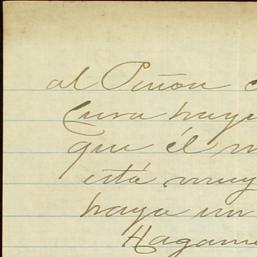 al Piñon
Cura haya
que él
está muy
haya un